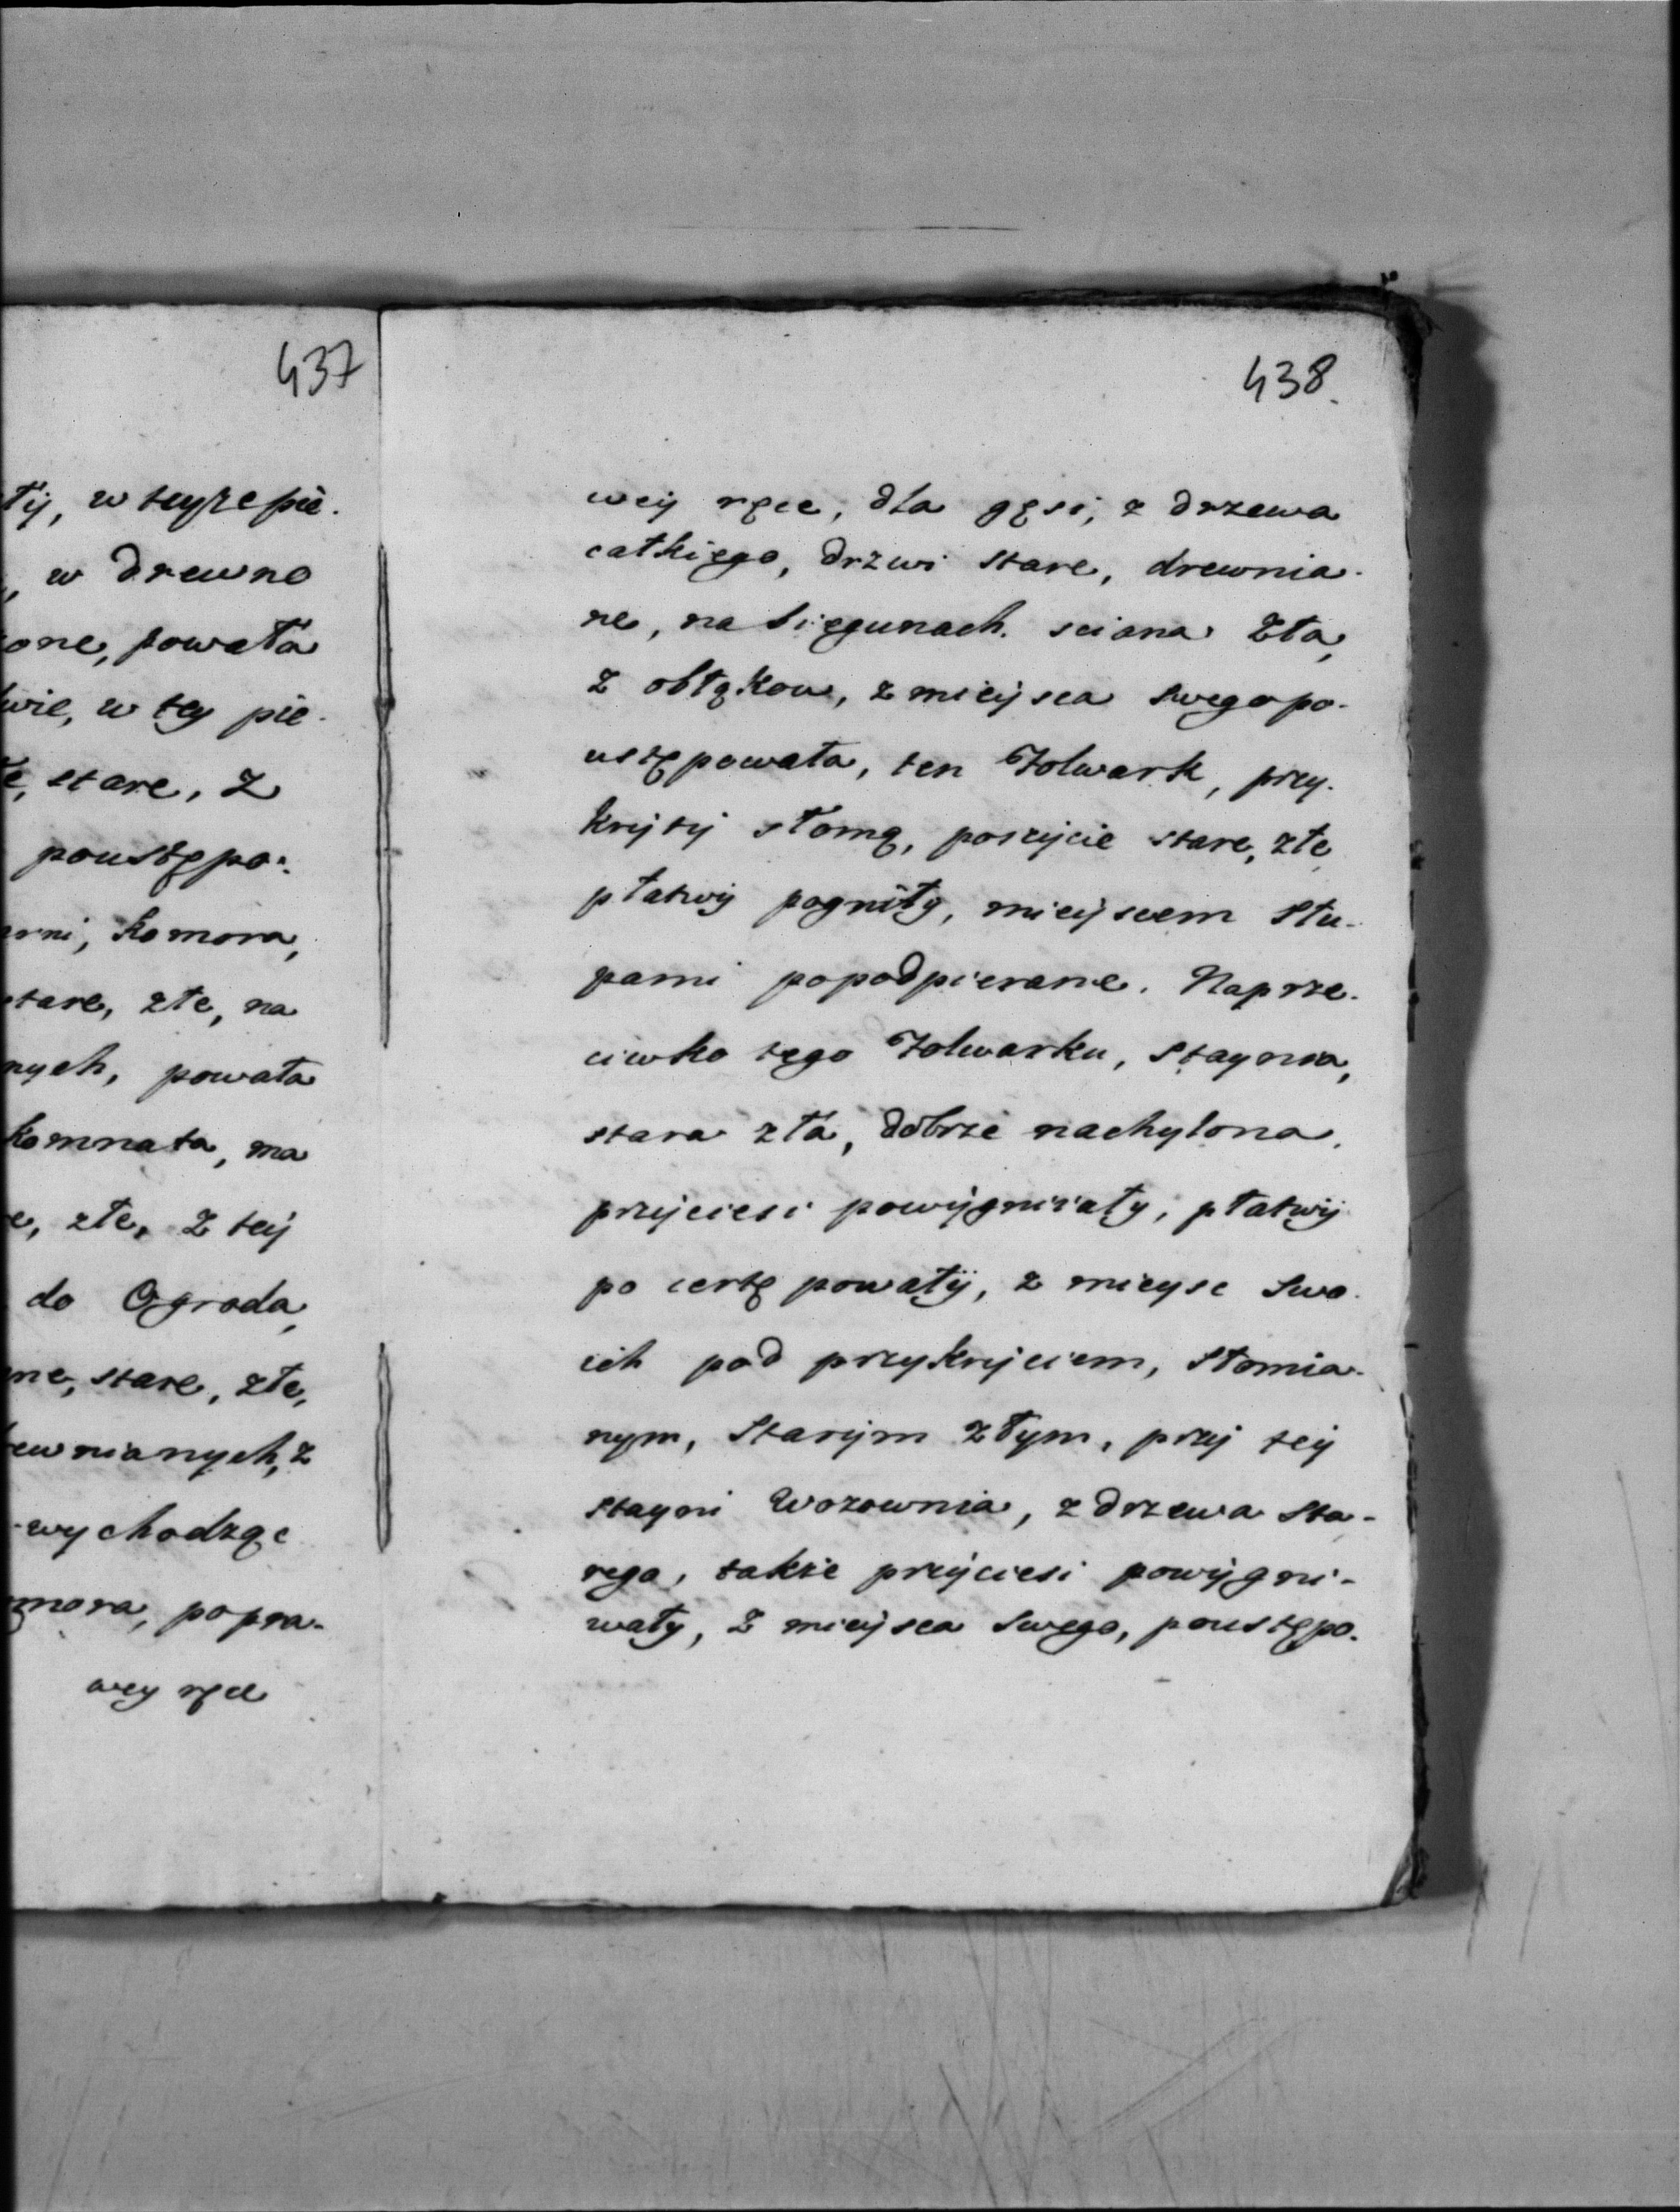 437
ły, w teyże pie.
, w drewno
one, powała
wie, w tey pie.
łe, stare, z
poustępo:
arni, komora,
stare, złe, na
nych, powała
komnata, ma
e, złe, z teij
do Ogroda,
ne, stare, złe,
rewnianych, z
wychodząc
omora, popra-
wey ręce
438.
weij ręce, dla gęsi, z drzewa
całkięgo, drzwi stare, drewnia-
ne, na biegunach. sciana zła,
z obłąkow, z mieijsca swego po-
ustępowała, ten Folwark, przy-
krijtij słomą, poszijcie stare, złe,
płatwij pogniłÿ, mieijscem stu-
pami popodpierane. Naprze-
ciwko tego Folwarku, Staynia,
stara zła, dobrze nachylona,
przijciesi powijgniiały, płatwij
po ustępowałij, z mieysc swo-
ich pod przykrijciem, słomia-
nym, Starijm złym, przij teij
stayni Wozownia, z drzewa sta-
rego, także przijciesi powijgni-
wały, z mieijsca swego, poustępo-